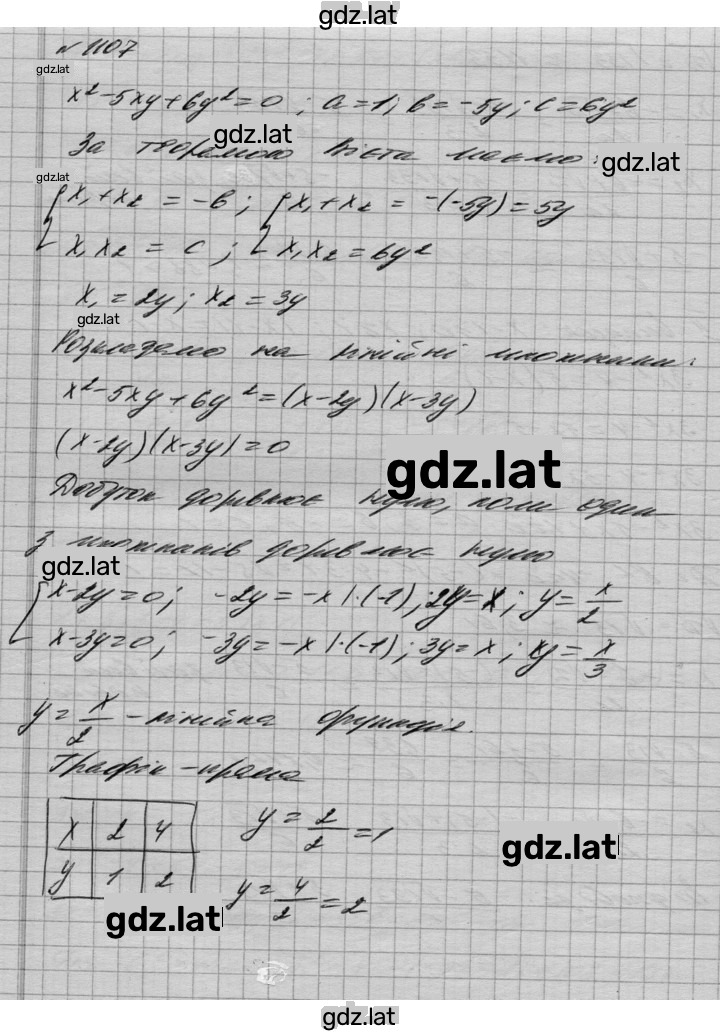 gdz.lat
№ 1107
gdz.lat
x²-5xy+6y²=0 ; a=1; b=-5y; c=6y²
gdz.lat
За теоремою Вієта маємо:
gdz.lat
gdz.lat
{ x₁+x₂ = -b ; { x₁+x₂ = -(-5y)=5y
x₁x₂ = c ; x₁x₂=6y²
x₁=2y; x₂=3y
gdz.lat
Розкладемо на лінійні множники:
x²-5xy+6y²=(x-2y)(x-3y)
(x-2y)(x-3y)=0
gdz.lat
Добуток дорівнює нулю, коли один
з множників дорівнює нулю
gdz.lat
[ x-2y=0; -2y=-x |·(-1); 2y=x; y=x/2
x-3y=0; -3y=-x |·(-1); 3y=x; y=x/3
y=x/2 -лінійна функція.
Графік -пряма
x 2 4 y=2/2=1
gdz.lat
y 1 2 y=4/2=2
gdz.lat
gdz.lat